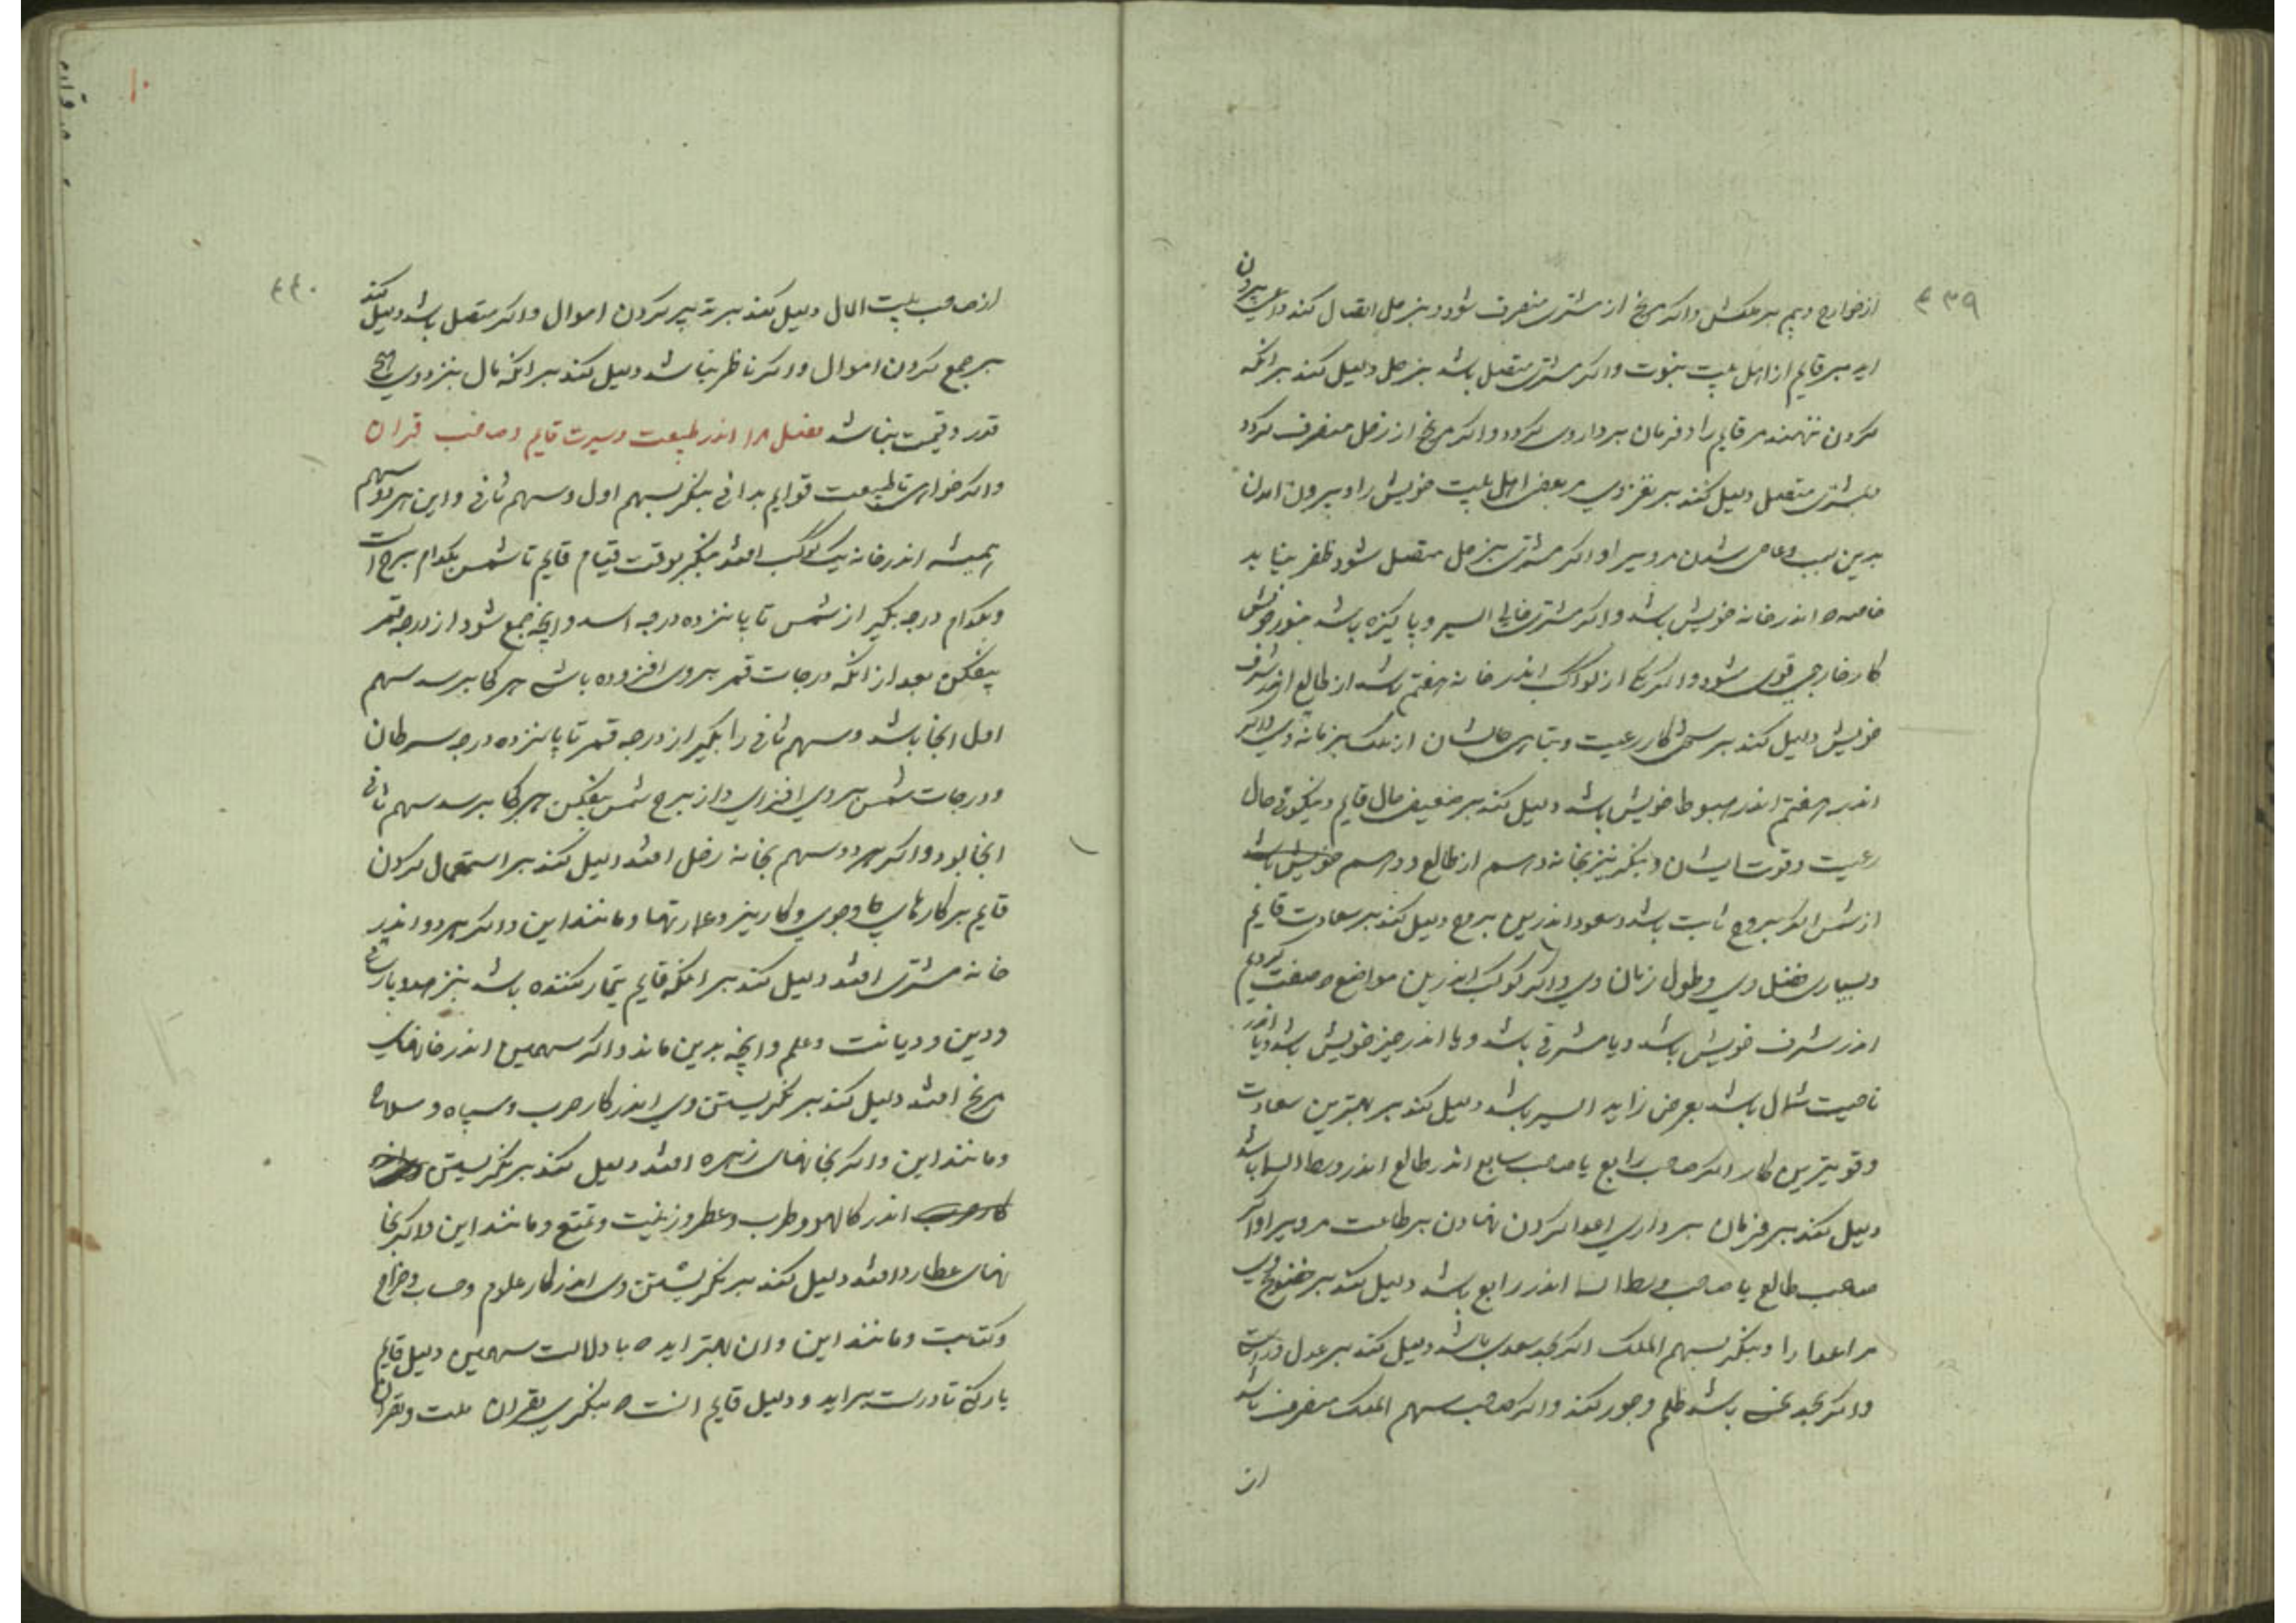 ۴۳۹
از خوارج و بیم بر ملکش واکر مریخ از مشتری منصرف شود و بزحل اتصال کند دلیل بیرون
اید بر قایم از اهل بیت نبوت واکر مشتری متصل باشد بزحل دلیل کند بر انکه
کردن ننهند مر قایم را و فرمان بردار وی کردد واکر مریخ از زحل منصرف کردد
بمشتری متصل دلیل کند بر وی مر بعضی اهل بیت خویش را و بیرون امدن
بدین سبب و عاصی شدن مر ویرا واکر مشتری بزحل متصل شود ظفر نیابد
خاصه اندر خانه خویش باشد واکر مشتری خالی السیر و پاکیزه باشد
کار خارجی قوی شود واکر از کواکب اندر خانه هفتم باشد از طالع اندر شرف
خویش دلیل کند بر سختی کار رعیت و تباهی حالشان از ملک بزمانه وی واکر
اندر هفتم اندر هبوط خویش باشد دلیل کند بر ضعیف حال قایم و نیکوئی حال
رعیت و قوت ایشان و بنکر نیز بخانه دهم از طالع و دهم
از شمس اکر ببروج ثابت باشد و سعود اندرین بروج دلیل کند بر سعادت قایم
و بسیاری فضل وی و طول زمان وی واکر کوکب اندرین مواضع صفت کردیم
اندر شرف خویش باشد و یا مشرقی باشد و یا اندر حیز خویش باشد و یا اندر
ناحیت شمال باشد بعرض زاید السیر باشد دلیل کند بر بهترین سعادت
و قویترین کار اکر صاحب رابع یا صاحب سابع اندر طالع اندر وسط السما باشد
دلیل کند بر فرمان برداری اعدا کردن نهادن بر طاعت مر ویرا واکر
صاحب طالع یا صاحب وسط السما اندر رابع باشد دلیل کند بر خضوع وی
مر اعدا را و بنکر بسهم الملک اکر بحد سعدی باشد دلیل کند بر عدل و راستی
واکر بحد نحس باشد ظلم و جور کند واکر صاحب سهم الملک منصرف باشد
از
۴۴۰
از صاحب بیت المال دلیل کند بر تدبیر کردن اموال واکر متصل باشد دلیل کند
بر جمع کردن اموال واکر ناظر نباشد دلیل کند بر انکه مال بنزد وی هیچ
قدر و قیمت نباشد فصل ۱۸ اندر طبیعت و سیرت قایم و صاحب قران
واکر خواهی تا طبیعت قوایم بدانی بنکر بسهم اول و سهم ثانی و این هر دو سهم
همیشه اندر خانه یک کوکب افتد بنکر بوقت قیام قایم تا شمس بکدام برج است
و بکدام درجه بکیر از شمس تا پانزده درجه اسد و انچه جمع شود از درجه قمر
بیفکن بعد از انکه درجات قمر بر وی افزوده باشی هر کجا برسد سهم
اول انجا باشد و سهم ثانی را بکیر از درجه قمر تا پانزده درجه سرطان
و درجات شمس بر وی افزای و از برج شمس بیفکن هر کجا برسد سهم ثانی
انجا بود واکر هر دو سهم بخانه زحل افتد دلیل کند بر استعمال کردن
قایم بر کارهای و جوی و کاریز و عمارتها و مانند این واکر هر دو اندر
خانه مشتری افتد دلیل کند بر انکه قایم تیمار کننده باشد
و دین و دیانت و علم و انچه بدین ماند واکر سهمین اندر خانهای
مریخ افتد دلیل کند بر نکریستن وی اندر کار حرب و سپاه و سلاح
و مانند این واکر بخانهای زهره افتد دلیل کند بر نکریستن
کار حرب اندر کا لهو و طرب و عطر و زینت و تمتع و مانند این واکر بخا
نهای عطارد افتد دلیل کند بر نکریشتن وی اندر کار علوم و حساب و خراج
و کتابت و مانند این وان بهتر اید با دلالت سهمین دلیل قایم
یار کنی تا درست براید و دلیل قایم انست بنکری بقران ملت و بقران